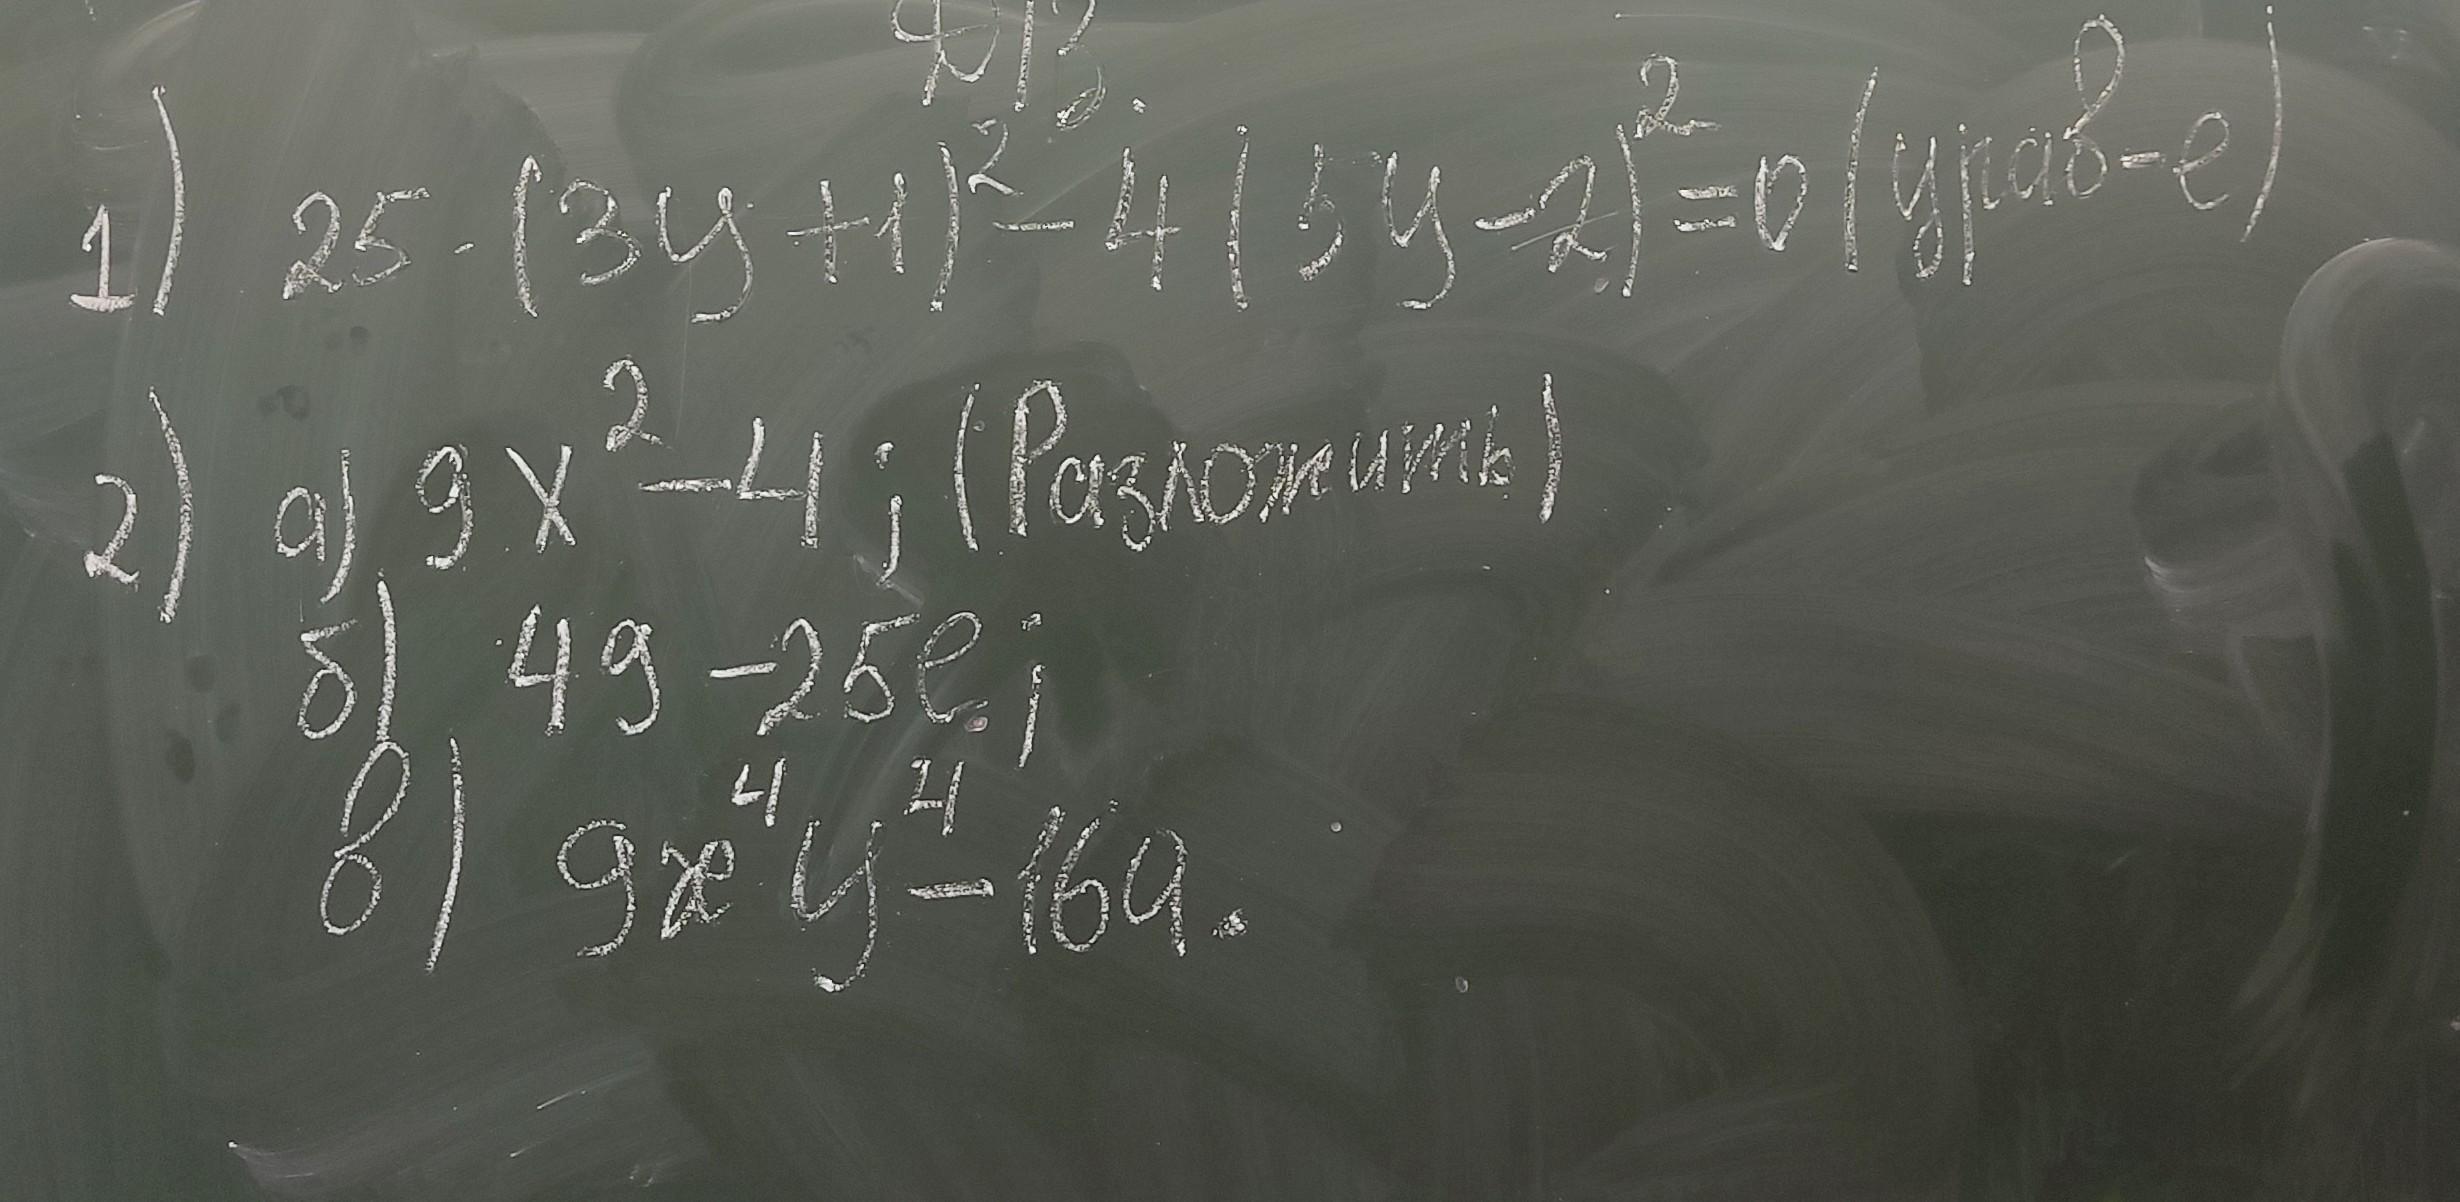 Д/З.
1) 25·(3y+1)²-4(5y-2)²=0 (урав-е)
2) а) 9x²-4; (Разложить)
б) 49-25с;
в) 9x⁴y⁴-169.